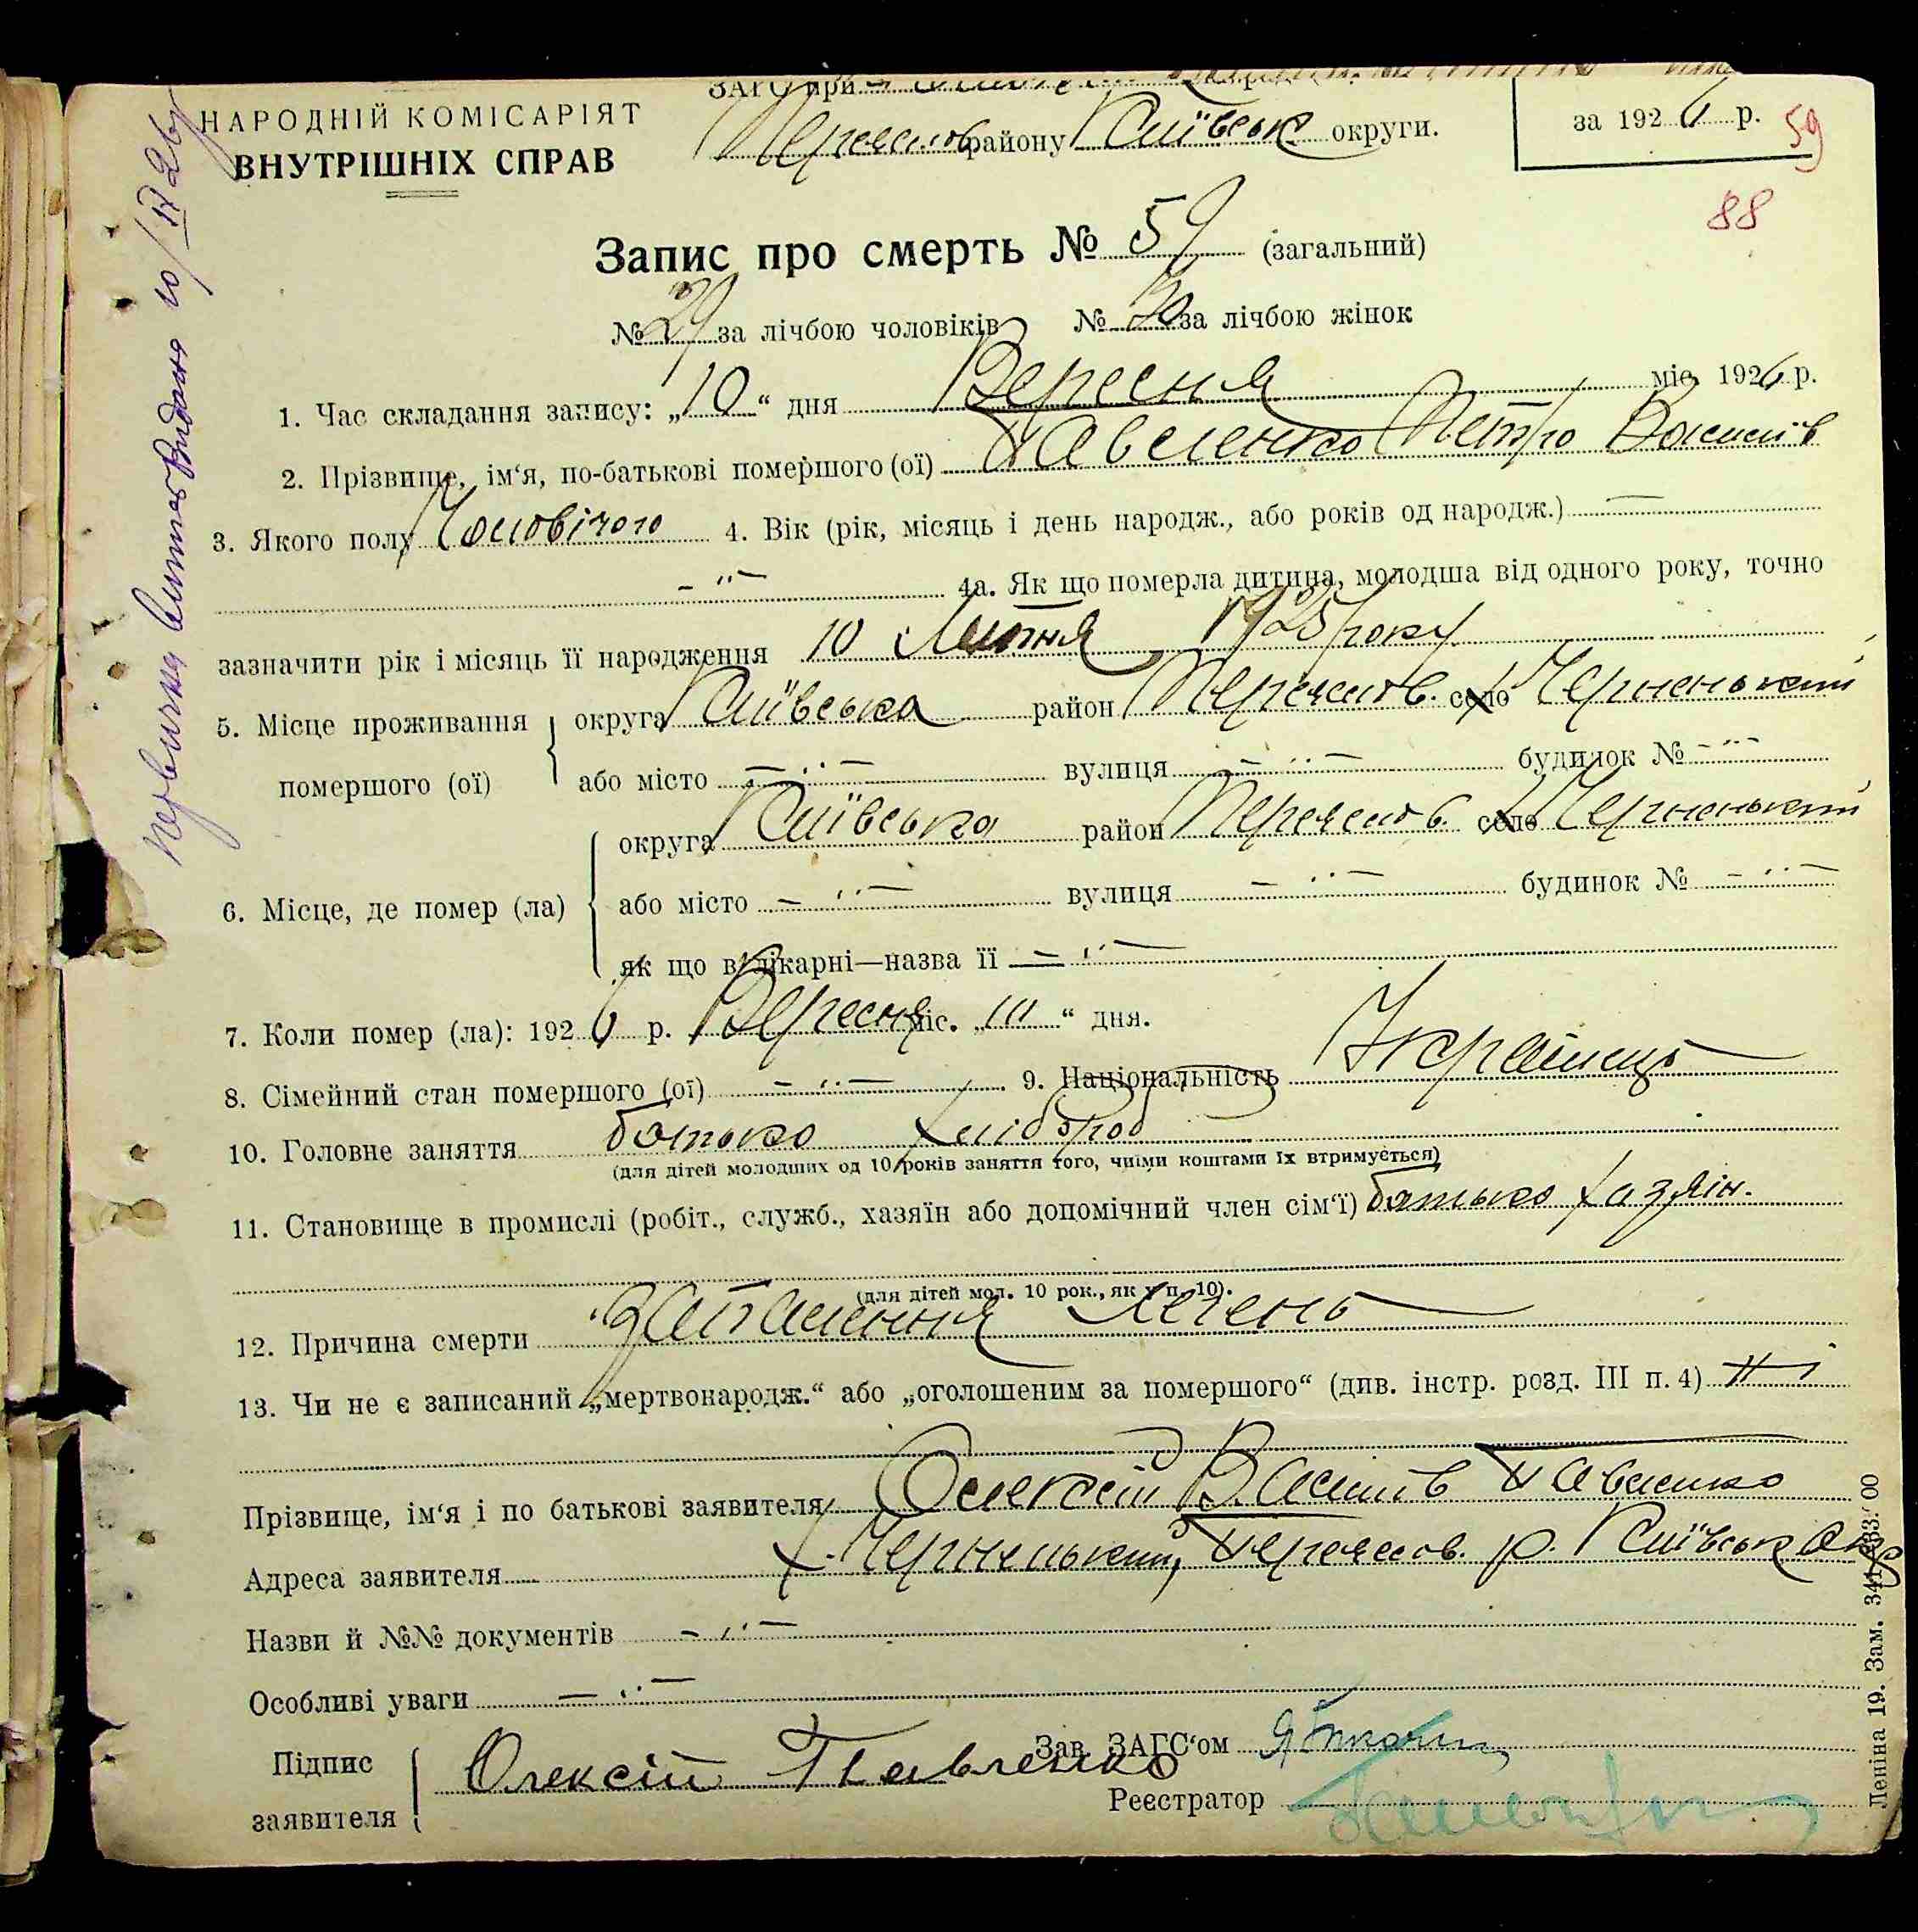 НАРОДНІЙ КОМІСАРІЯТ
ВНУТРІШНІХ СПРАВ
ЗАГС при
Переяслов району Київськ округи.
за 1926 р.
59
88
Запис про смерть № 59 (загальний)
№ 29 за лічбою чоловіків № 30 за лічбою жінок
1. Час складання запису: „10“ дня Вересня міс 1926 р.
2. Прізвище, ім‘я, по-батькові помершого (ої) Павеленко Петро Василів
3. Якого полу Чоловічого 4. Вік (рік, місяць і день народж., або років од народж.) —
– " — 4а. Як що померла дитина, молодша від одного року, точно
зазначити рік і місяць її народження 10 Липня 1925 року
5. Місце проживання помершого (ої) округа Київська район Переяслов. село Х Черненький
або місто – " — вулиця – " — будинок № – " —
6. Місце, де помер (ла) округа Київська район Переяслов. село Х Черненький
або місто – " — вулиця – " — будинок № – " —
як що в лікарні—назва її — " —
7. Коли помер (ла): 1926 р. Вересня міс. „10“ дня.
8. Сімейний стан помершого (ої) – " — 9. Національність Українець
10. Головне заняття батько Хлібороб
(для дітей молодших од 10 років заняття того, чиїми коштами їх втримується)
11. Становище в промислі (робіт., служб., хазяїн або допомічний член сім‘ї) батько хазяін.
(для дітей мол. 10 рок., як у п. 10).
12. Причина смерти Запалення легень
13. Чи не є записаний „мертвонародж.“ або „оголошеним за помершого“ (див. інстр. розд. III п. 4) Ні
Прізвище, ім‘я і по батькові заявителя Олексій Василів Павленко
Адреса заявителя х. Черненький, Переяслов. р. Київськ Окр
Назви й №№ документів – " —
Особливі уваги — " —
Підпис заявителя Олексій Павленко
Зав. ЗАГС‘ом
Реєстратор
Леніна 19. Зам.